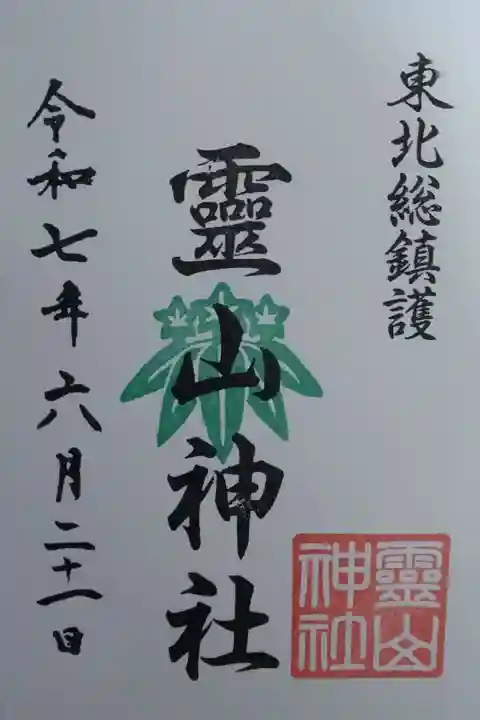 東北総鎮護
靈山神社
令和七年六月二十一日
靈山
神社